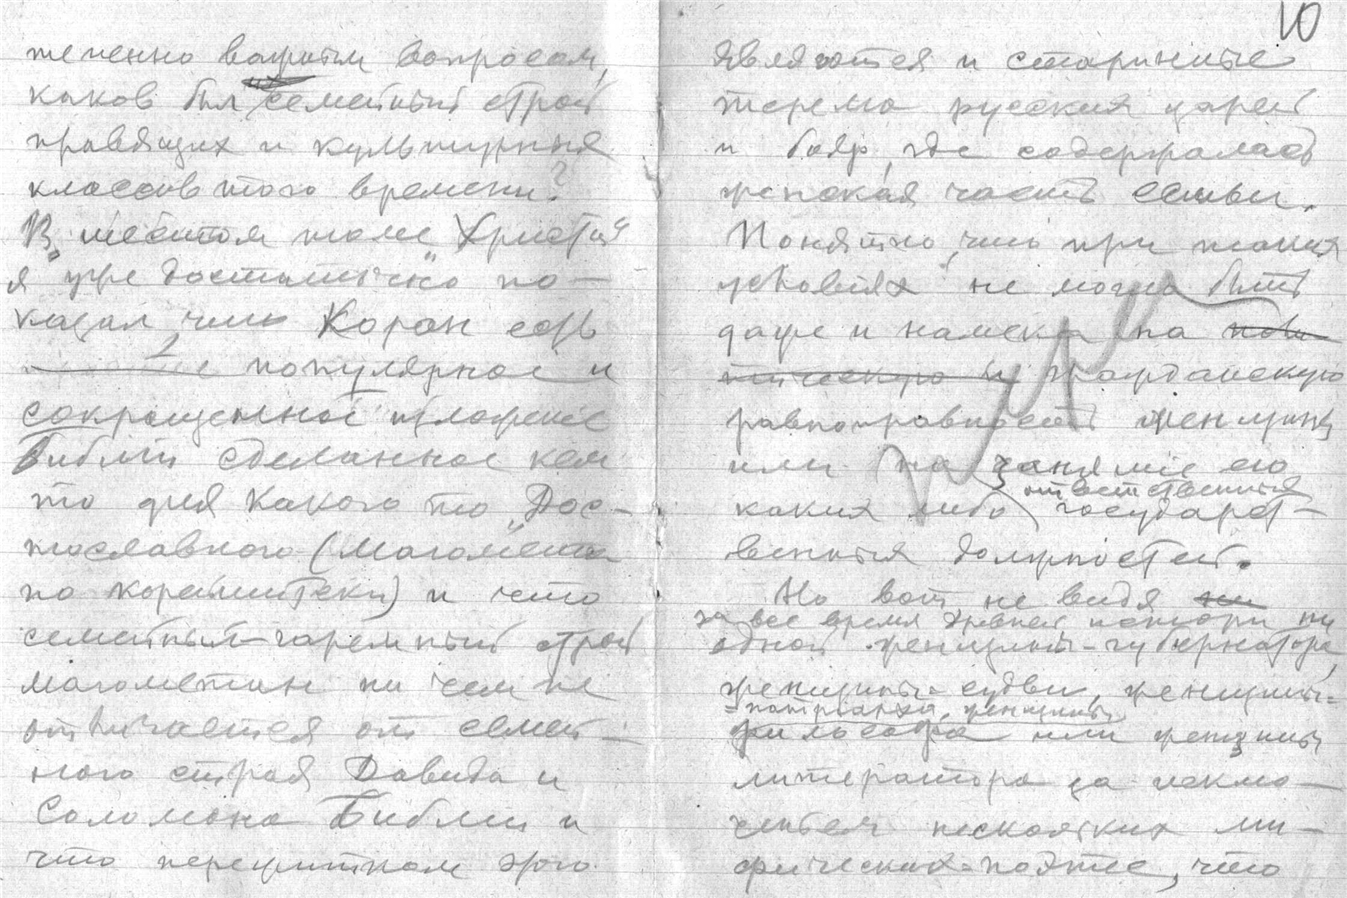 женно важным вопросом,
каков был семейный строй
правящих и культурных
классов того времени?
В шестом томе „Христа“
я уже достаточно по-
казал, что Коран есть
популярное и
сокращенное изложение
Библии сделанное кем
то для какого то „Дос-
тославного (Магомета
по корейшитски) и что
семейный гаремный строй
магометан ни чем не
отличается от семей-
ного строя Давида и
Соломона Библии и
что пережитком этого
10
являются и старинные
терема русских царей
и бояр, где содержалась
женская часть семьи.
Понятно, что при таких
условиях не могло быть
даже и намека на
гражданскую
равноправность женщины
или на занятие ею
ответственных
каких либо государст-
венных должностей.
Но вот не видя
за все время древней истории ни
одной женщины-губернатора,
женщины-судьи, женщины-
патриарха, женщины
философа или женщины
литератора за исклю-
ченьем нескольких ми-
фических поэтес, что